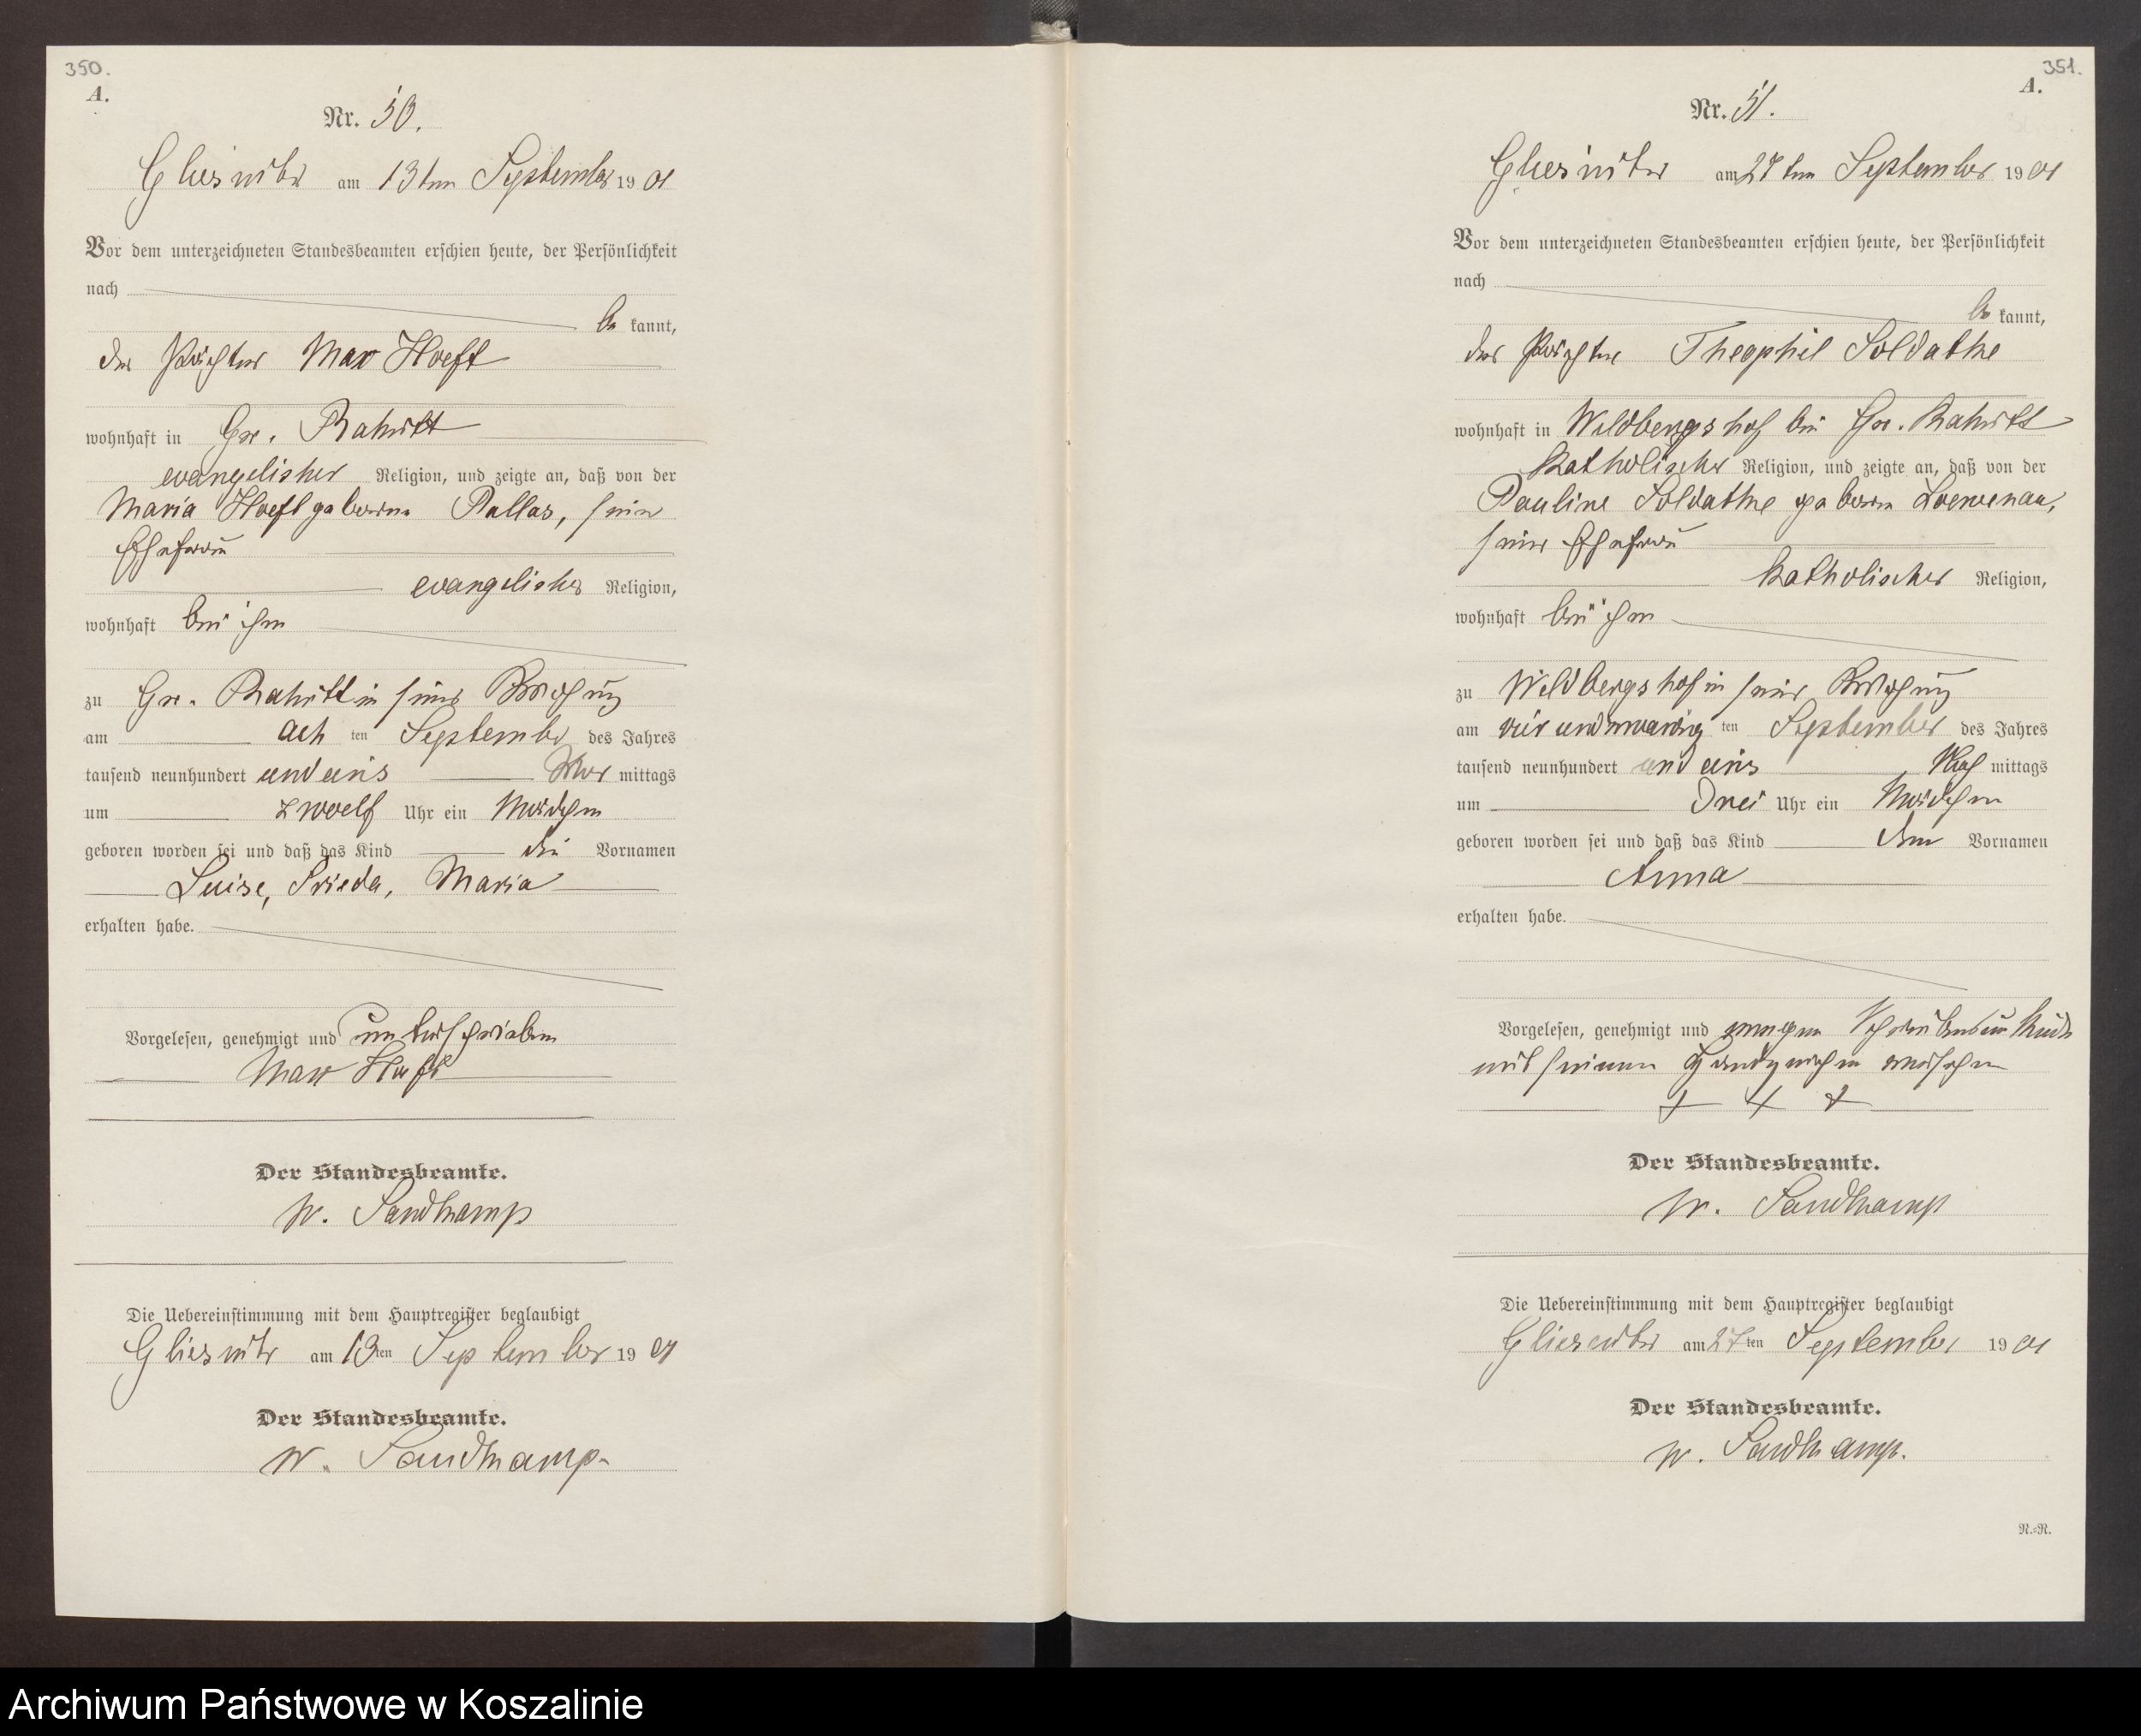 350.
A.
Nr. 50.
Gliesnitz am 13ten September 1901
Vor dem unterzeichneten Standesbeamten erschien heute, der Persönlichkeit
nach
be kannt,
der Pächter Max Hoeft
wohnhaft in Gr. Rakitt
evangelischer Religion, und zeigte an, daß von der
Maria Hoeft geborene Pallas, seiner
Ehefrau
evangelischer Religion,
wohnhaft bei ihm
zu Gr. Rakitt in seiner Wohnung
am ach ten September des Jahres
tausend neunhundert und eins Vor mittags
um zwoelf Uhr ein Mädchen
geboren worden sei und daß das Kind die Vornamen
Luise, Frieda, Maria
erhalten habe.
Vorgelesen, genehmigt und unterschrieben
Max Hoeft
Der Standesbeamte.
W. Sandkamp
Die Uebereinstimmung mit dem Hauptregister beglaubigt
Gliesnitz am 13ten September 1901
Der Standesbeamte.
W. Sandkamp.
351.
A.
Nr. 51.
Gliesnitz am 27ten September 1901
Vor dem unterzeichneten Standesbeamten erschien heute, der Persönlichkeit
nach
be kannt,
der Pächter Theophil Soldathe
wohnhaft in Wildbergshof bei Gr. Rakitt
katholischer Religion, und zeigte an, daß von der
Pauline Soldathe geborene Loewenau,
seiner Ehefrau
katholischer Religion,
wohnhaft bei ihm
zu Wildbergshof in seiner Wohnung
am vier und zwanzig ten September des Jahres
tausend neunhundert und eins Nach mittags
um Drei Uhr ein Mädchen
geboren worden sei und daß das Kind den Vornamen
Anna
erhalten habe.
Vorgelesen, genehmigt und wegen Schreibensunkunde
mit seinem Handzeichen versehen
+ + +
Der Standesbeamte.
W. Sandkamp
Die Uebereinstimmung mit dem Hauptregister beglaubigt
Gliesnitz am 27ten September 1901
Der Standesbeamte.
W. Sandkamp.
N.=N.
Archiwum Państwowe w Koszalinie